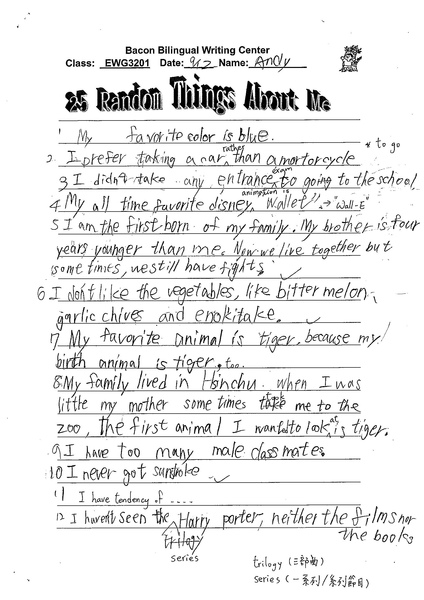 Bacon Bilingual Writing Center
Class: EWG3201 Date: 9/2 Name: Andy
25 Random Things About Me
1 My favorite color is blue.
rather * to go
2. I prefer taking a car than a mortorcycle
exam
3 I didn't take any entrance to going to the school
animation is
4 My all time favorite disney "Wallet" → "Wall-E"
5 I am the first born of my family. My brother is four
years younger than me. Now we live together but
some times, we still have fights.
6 I don't like the vegetables, like bitter melon,
garlic chives and enokitake.
7 My favorite animal is tiger, because my
birth animal is tiger, too.
8 My family lived in Hsinchu. When I was
little my mother some times take me to the
zoo, the first animal I wanted to look at is tiger.
9 I have too many male classmates
10 I never got sunstroke
11 I have tendency of ....
12 I haven't seen the Harry porter, neither the films nor
trilogy the books
series
trilogy (三部曲)
series (一系列/系列節目)